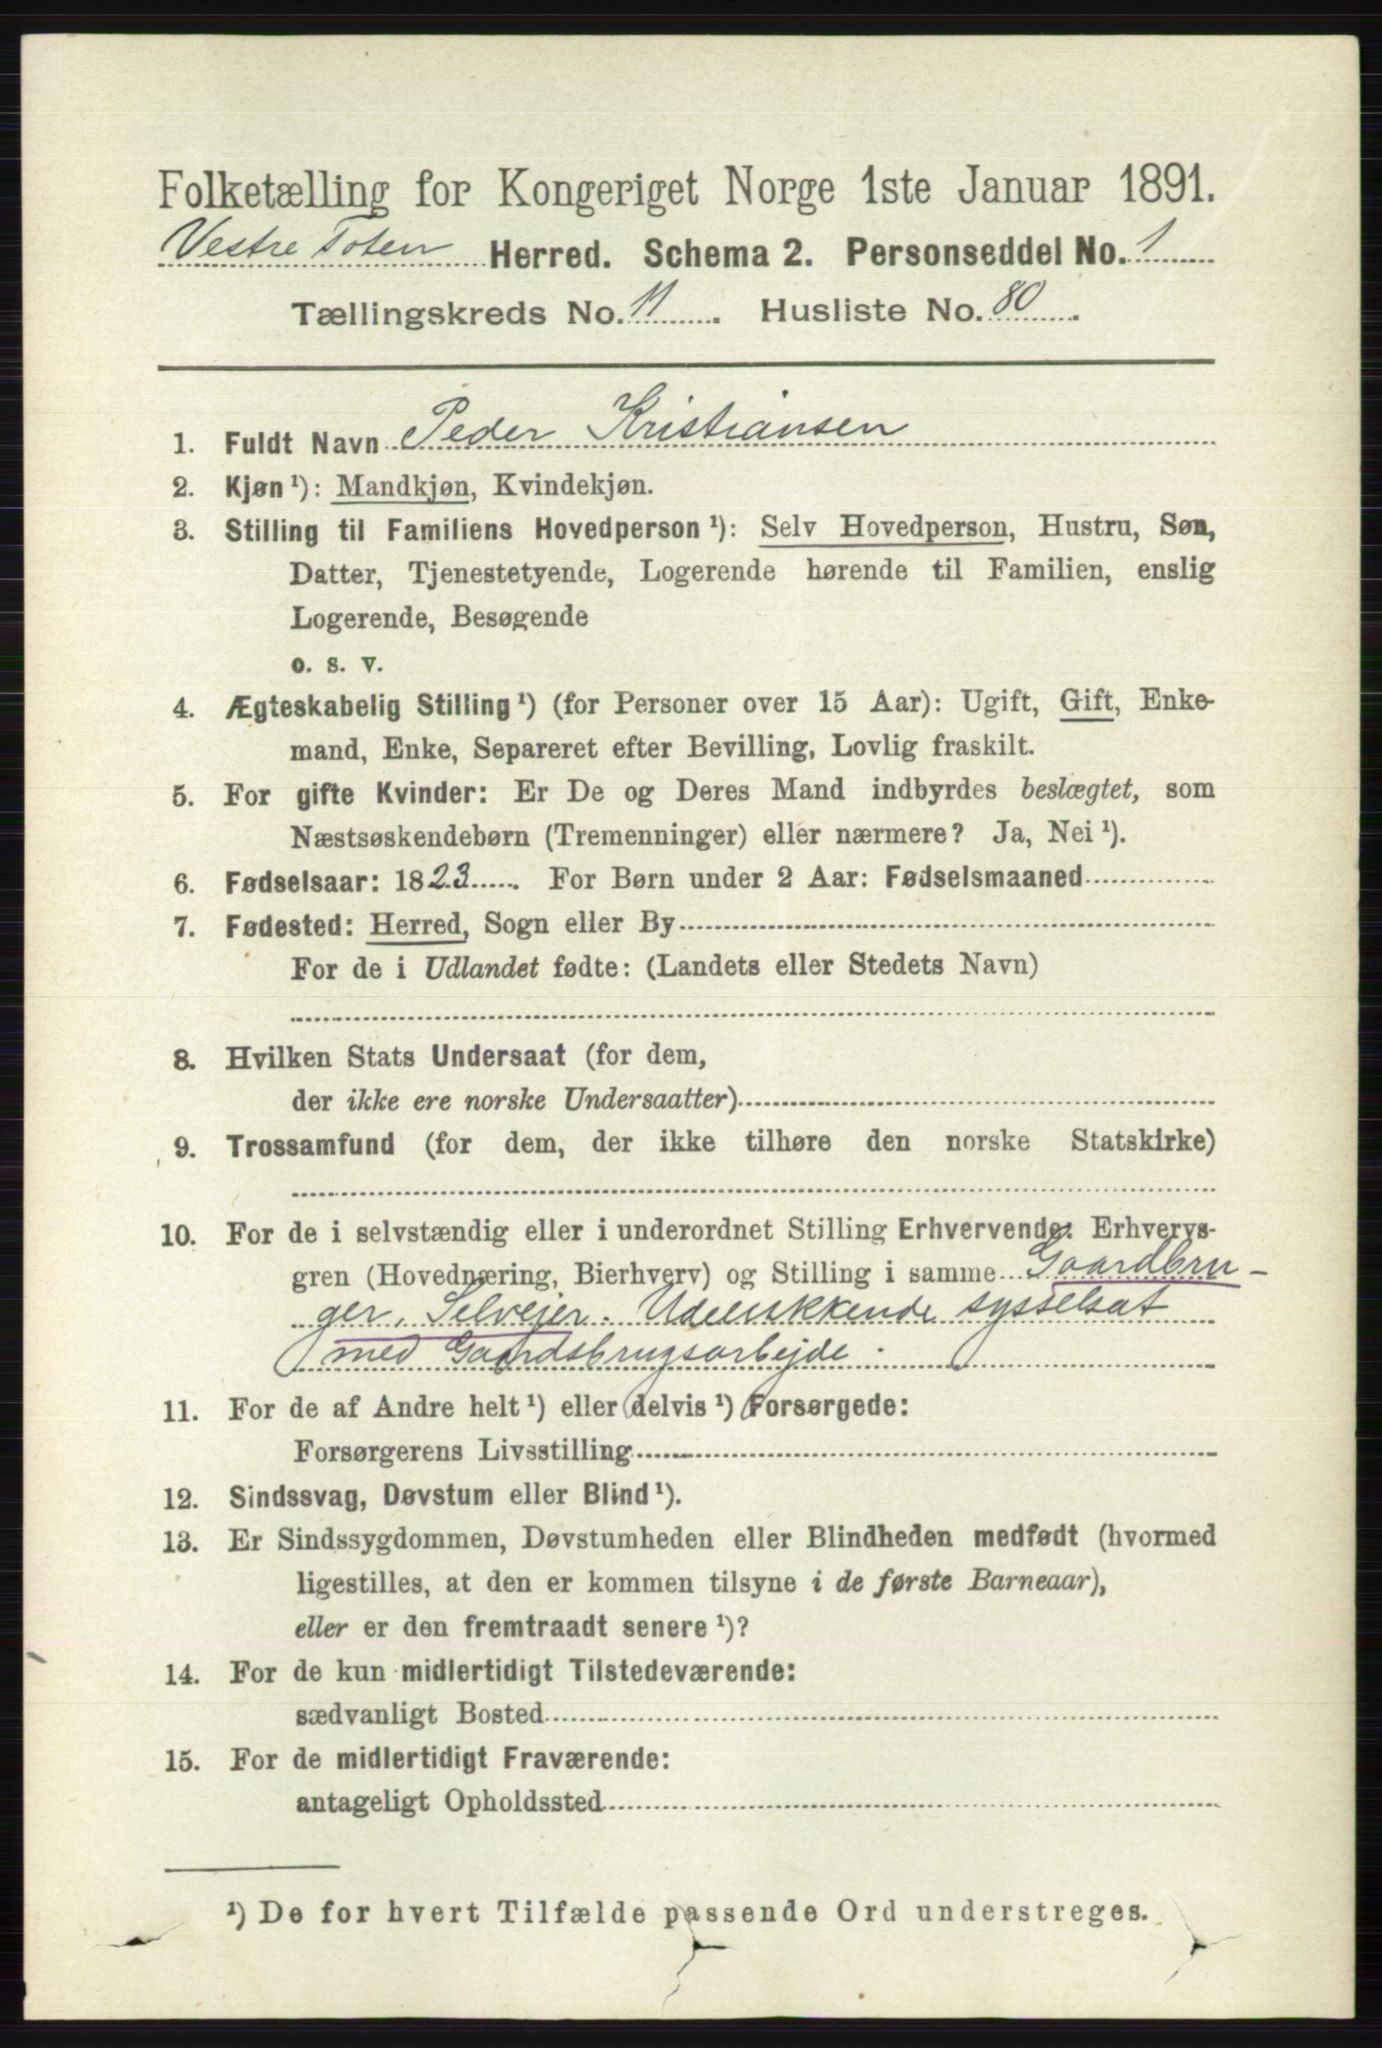 Folketælling for Kongeriget Norge 1ste Januar 1891.
Vestre Toten Herred. Schema 2. Personseddel No. 1
Tællingskreds No. 11. Husliste No. 80.
1. Fuldt Navn Peder Kristiansen
2. Kjøn¹): Mandkjøn, Kvindekjøn.
3. Stilling til Familiens Hovedperson¹): Selv Hovedperson, Hustru, Søn,
Datter, Tjenestetyende, Logerende hørende til Familien, enslig
Logerende, Besøgende
o. s. v.
4. Ægteskabelig Stilling¹) (for Personer over 15 Aar): Ugift, Gift, Enke-
mand, Enke, Separeret efter Bevilling, Lovlig fraskilt.
5. For gifte Kvinder: Er De og Deres Mand indbyrdes beslægtet, som
Næstsøskendebørn (Tremenninger) eller nærmere? Ja, Nei¹).
6. Fødselsaar: 1823. For Børn under 2 Aar: Fødselsmaaned
7. Fødested: Herred, Sogn eller By
For de i Udlandet fødte: (Landets eller Stedets Navn)
8. Hvilken Stats Undersaat (for dem,
der ikke ere norske Undersaatter)
9. Trossamfund (for dem, der ikke tilhøre den norske Statskirke)
10. For de i selvstændig eller i underordnet Stilling Erhvervende: Erhvervs-
gren (Hovednæring, Bierhverv) og Stilling i samme Gaardbru-
ger, Selvejer. Udelukkende sysselsat
med Gaardsbrugsarbejde.
11. For de af Andre helt¹) eller delvis¹) Forsørgede:
Forsørgerens Livsstilling
12. Sindssvag, Døvstum eller Blind¹).
13. Er Sindssygdommen, Døvstumheden eller Blindheden medfødt (hvormed
ligestilles, at den er kommen tilsyne i de første Barneaar),
eller er den fremtraadt senere¹)?
14. For de kun midlertidigt Tilstedeværende:
sædvanligt Bosted
15. For de midlertidigt Fraværende:
antageligt Opholdssted
¹) De for hvert Tilfælde passende Ord understreges.